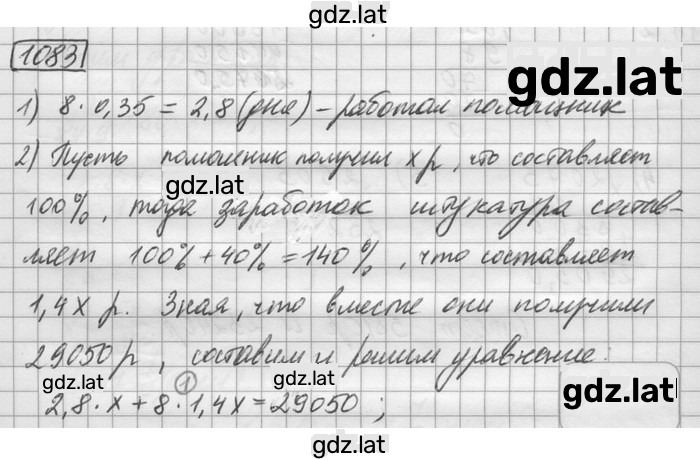 gdz.lat
1083
gdz.lat
1) 8 · 0,35 = 2,8 (дня) – работал помощник
2) Пусть помошник получил x р, что составляет
gdz.lat
100%, тогда заработок штукатура состав-
ляет 100% + 40% = 140%, что составляет
1,4x р. Зная, что вместе они получили
29050 р, составим и решим уравнение:
gdz.lat
1
2,8 · x + 8 · 1,4x = 29050 ;
gdz.lat
gdz.lat